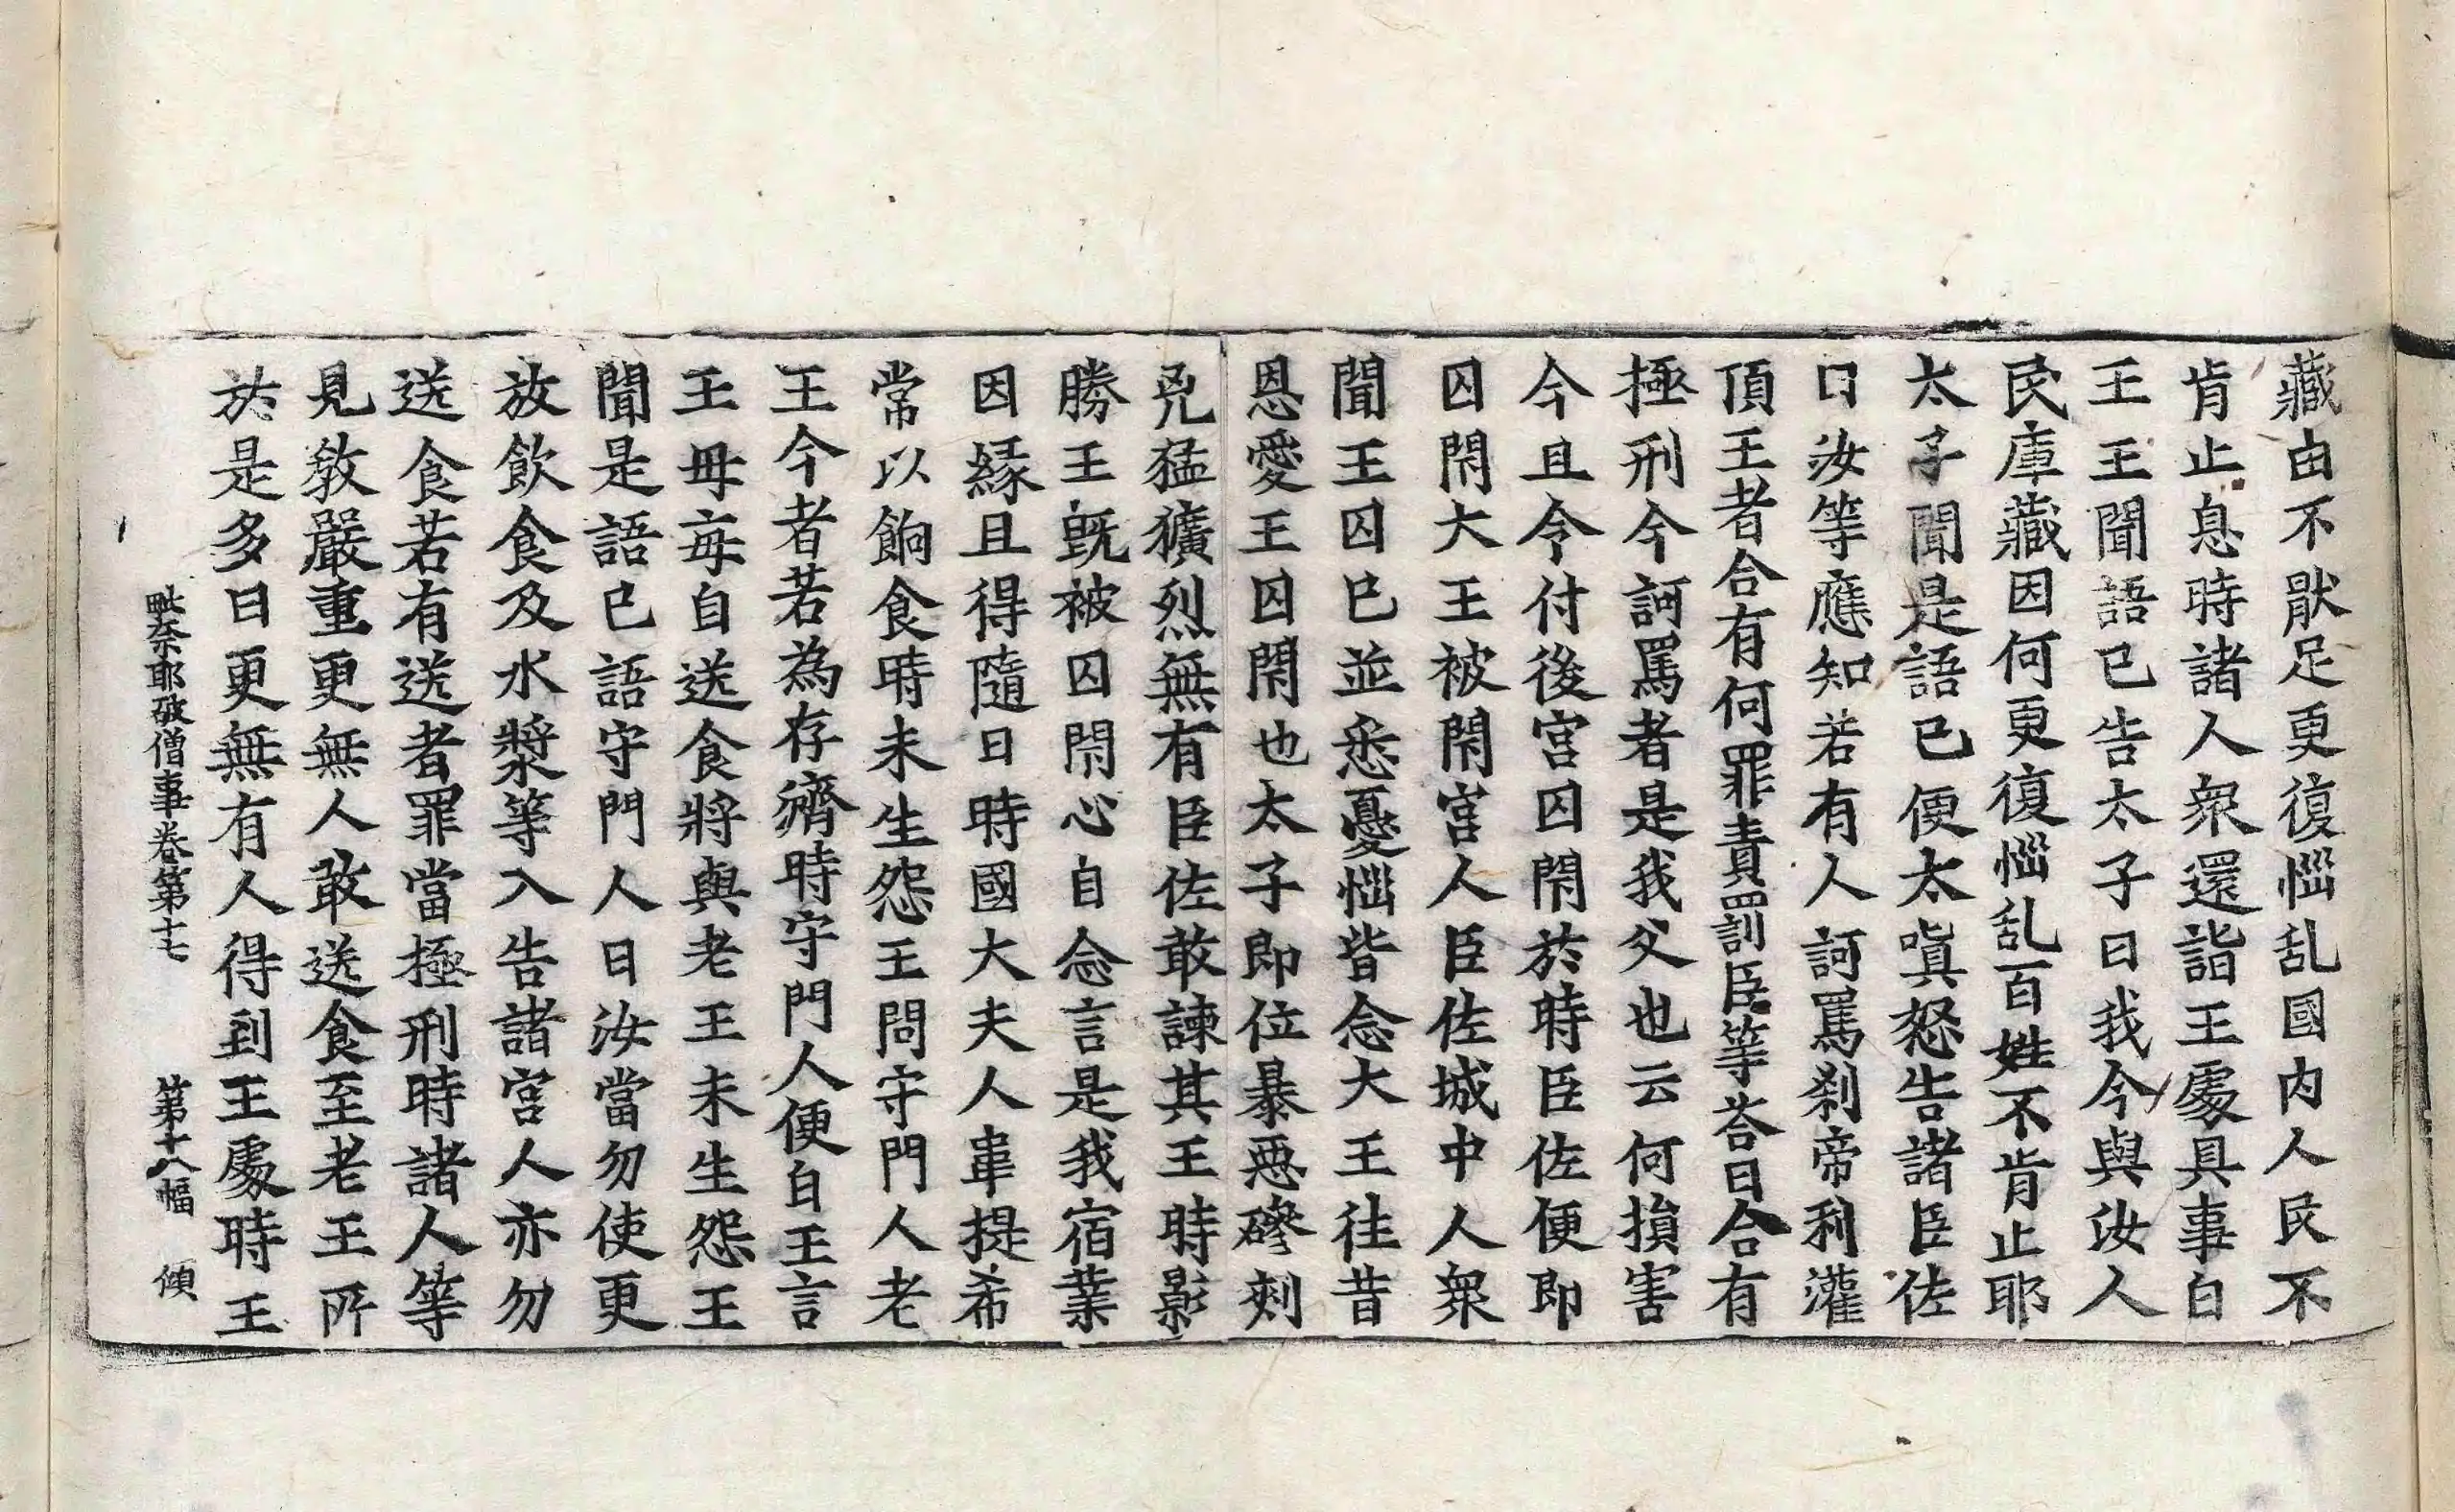 藏由不猒足更復惱乱國内人民不
肯止息時諸人衆還詣王處具事白
王王聞語已告太子曰我今與汝人
民庫藏因何更復惱乱百姓不肯止耶
太子聞是語已便太嗔怒告諸臣佐
曰汝等應知若有人訶罵刹帝利灌
頂王者合有何罪責罰臣等荅曰合有
極刑今訶罵者是我父也云何損害
今且令付後宫囚閇於時臣佐便即
囚閇大王王被閇宫人臣佐城中人衆
聞王囚已並悉憂惱皆念大王往昔
恩愛王囚閇也太子即位暴惡磣刾
兇猛獷烈無有臣佐敢諫其王時影
勝王既被囚閇心自念言是我宿業
因縁且得隨日時國大夫人韋提希
常以餉食時未生怨王問守門人老
王今者若為存濟時守門人便白王言
王母每自送食將與老王未生怨王
聞是語已語守門人曰汝當勿使更
放飲食及水漿等入告諸宫人亦勿
送食若有送者罪當極刑時諸人等
見敎嚴重更無人敢送食至老王所
於是多日更無有人得到王處時王
毗奈耶破僧事卷第十七 第十八幅 傾